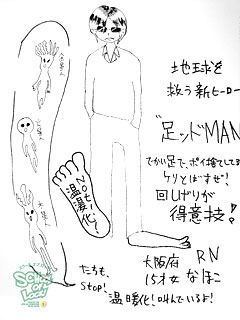 地球を
救う新ヒーロー
"足ッドMAN
でかい足で、ポイ捨てしてる
ケリとばすぜ!
回しげりが
得意技!!
Noセー
温暖化!
大阪府
15才女
RN
なほこ
たちも、
Stop!
温暖化!叫んでいるよ!
SCHOOL OF LOCK!